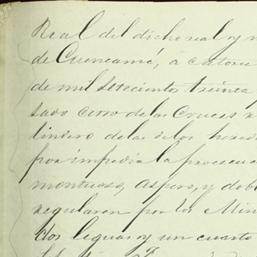 Real del dicho real y m
de Cuencamé, á catorc
de mil setecientos treinta
sado cerro de las Cruces
lindero de las de los
por impedir la prosecu
montuoso, áspero, y dob
regularon por los Min
dos leguas y un cuarto